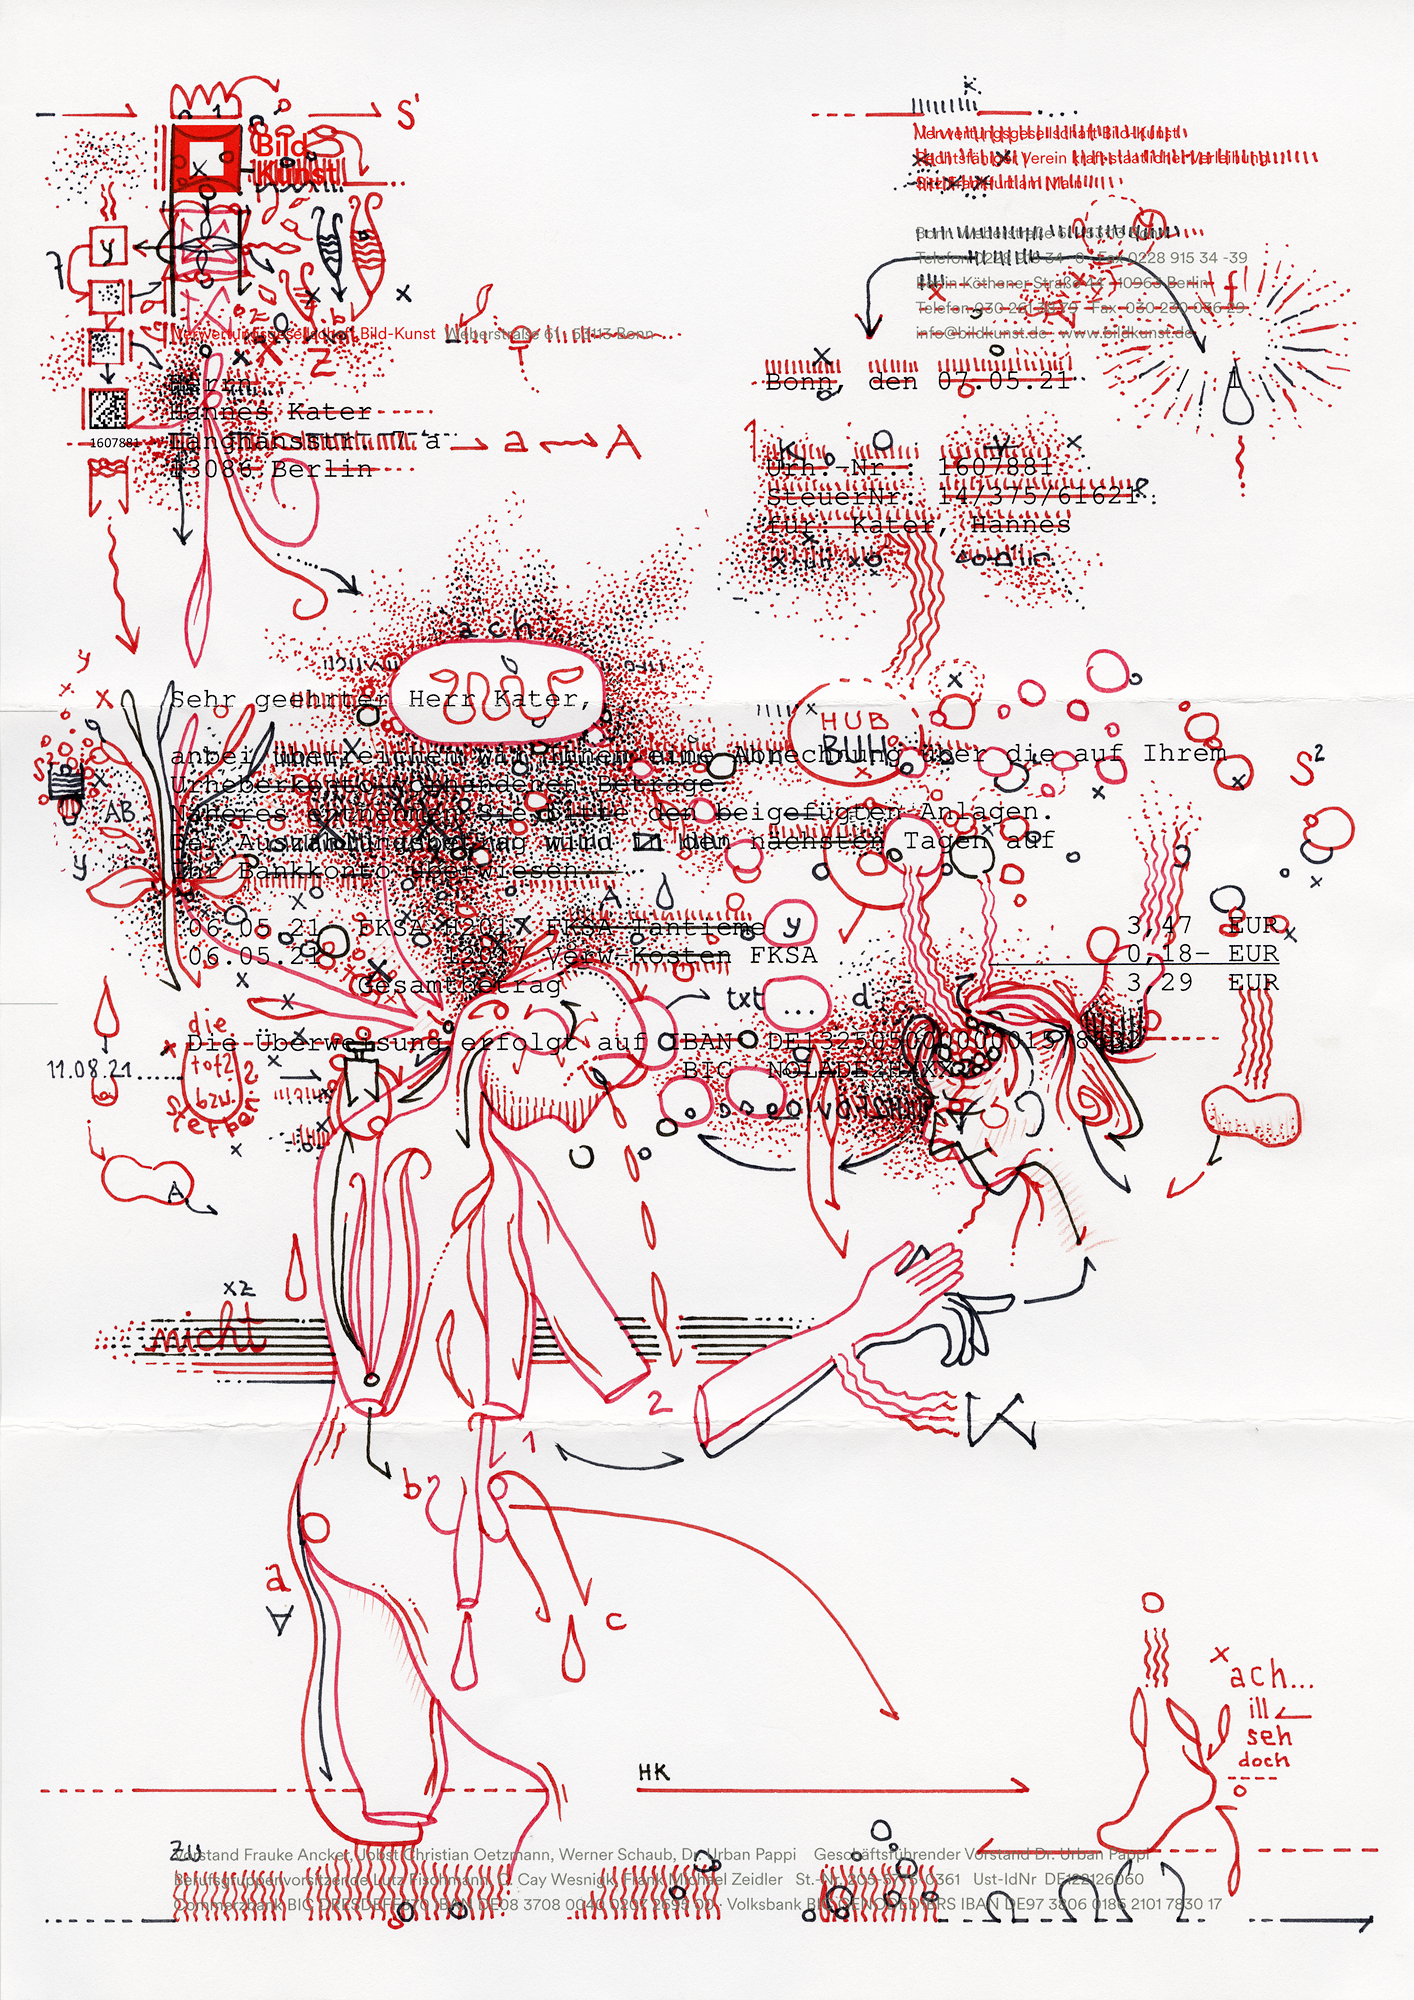 S'
1
Bild
Kunst
Verwertungsgesellschaft Bild-Kunst
Rechtsfähiger Verein kraft staatlicher Verleihung
Sitz: Frankfurt am Main
Bonn Weberstraße 61 · 53113 Bonn
Telefon 0228 915 34 -0 · Fax 0228 915 34 -39
Berlin Köthener Straße 44 · 10963 Berlin
info@bildkunst.de · www.bildkunst.de
y
7
f
Verwertungsgesellschaft Bild-Kunst Weberstraße 61 · 53113 Bonn
Z
Bonn, den 07.05.21
Herrn
Hannes Kater
1607881
Langhansstr. 7 a a A
13086 Berlin
1
Urh.-Nr.: 1607881
SteuerNr: 14/375/61621
für: Kater, Hannes
ach
Sehr geehrter Herr Kater,
HUB
BUH
anbei überreichen wir Ihnen eine Abrechnung über die auf Ihrem
Urheberkonto vorhandenen Beträge.
Näheres entnehmen Sie bitte den beigefügten Anlagen.
Der Auszahlungsbetrag wird in den nächsten Tagen auf
Ihr Bankkonto überwiesen.
S²
S²
AB
y
A
y
06.05.21 FKSA H2017 FKSA Tantieme 3,47 EUR
06.05.21 12017 Verw-Kosten FKSA 0,18- EUR
Gesamtbetrag 3,29 EUR
txt ... d
die
Die Überweisung erfolgt auf IBAN
BIC NOLADE2HXXX
11.08.21
tot2
bzw.
sterben
2
A
xz
nicht
2
1
K
b
a
c
HK
ach...
ill
seh
doch
zu
Vorstand Frauke Ancker, Jobst Christian Oetzmann, Werner Schaub, Dr. Urban Pappi Geschäftsführender Vorstand Dr. Urban Pappi
Berufsgruppenvorsitzende Lutz Fischmann, C. Cay Wesnigk, Frank Michael Zeidler St.-Nr. Ust-IdNr DE122126060
Commerzbank BIC IBAN DE08 3708 0040 · Volksbank BIC IBAN DE97 3806 0186 2101 7830 17